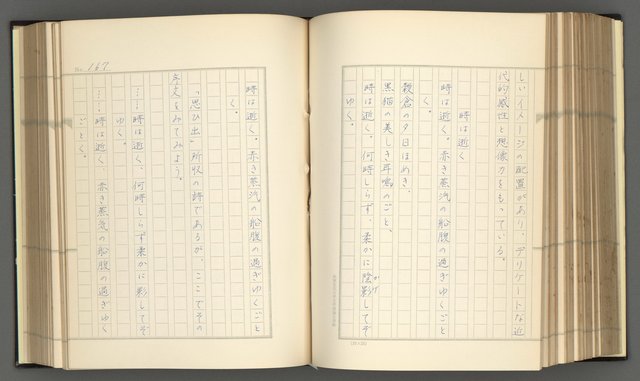 しいイメージの配置があり、デリケートな近
代的感性と想像力をもっている。
時は逝く
時は逝く。赤き蒸汽の船腹の過ぎゆくごと
く。
穀倉の夕日ほめき、
黒猫の美しき耳鳴のごと、
時は逝く。何時しらず、柔かに陰影してぞ
ゆく。
時は逝く。赤き蒸汽の船腹の過ぎゆくごと
く。
「思ひ出」所収の詩であるが、ここでその
序文をみてみよう。
……時は逝く、何時しらず柔かに影してぞ
ゆく。
……時は逝く、赤き蒸汽の船腹の過ぎゆく
ごとく。
No. 167